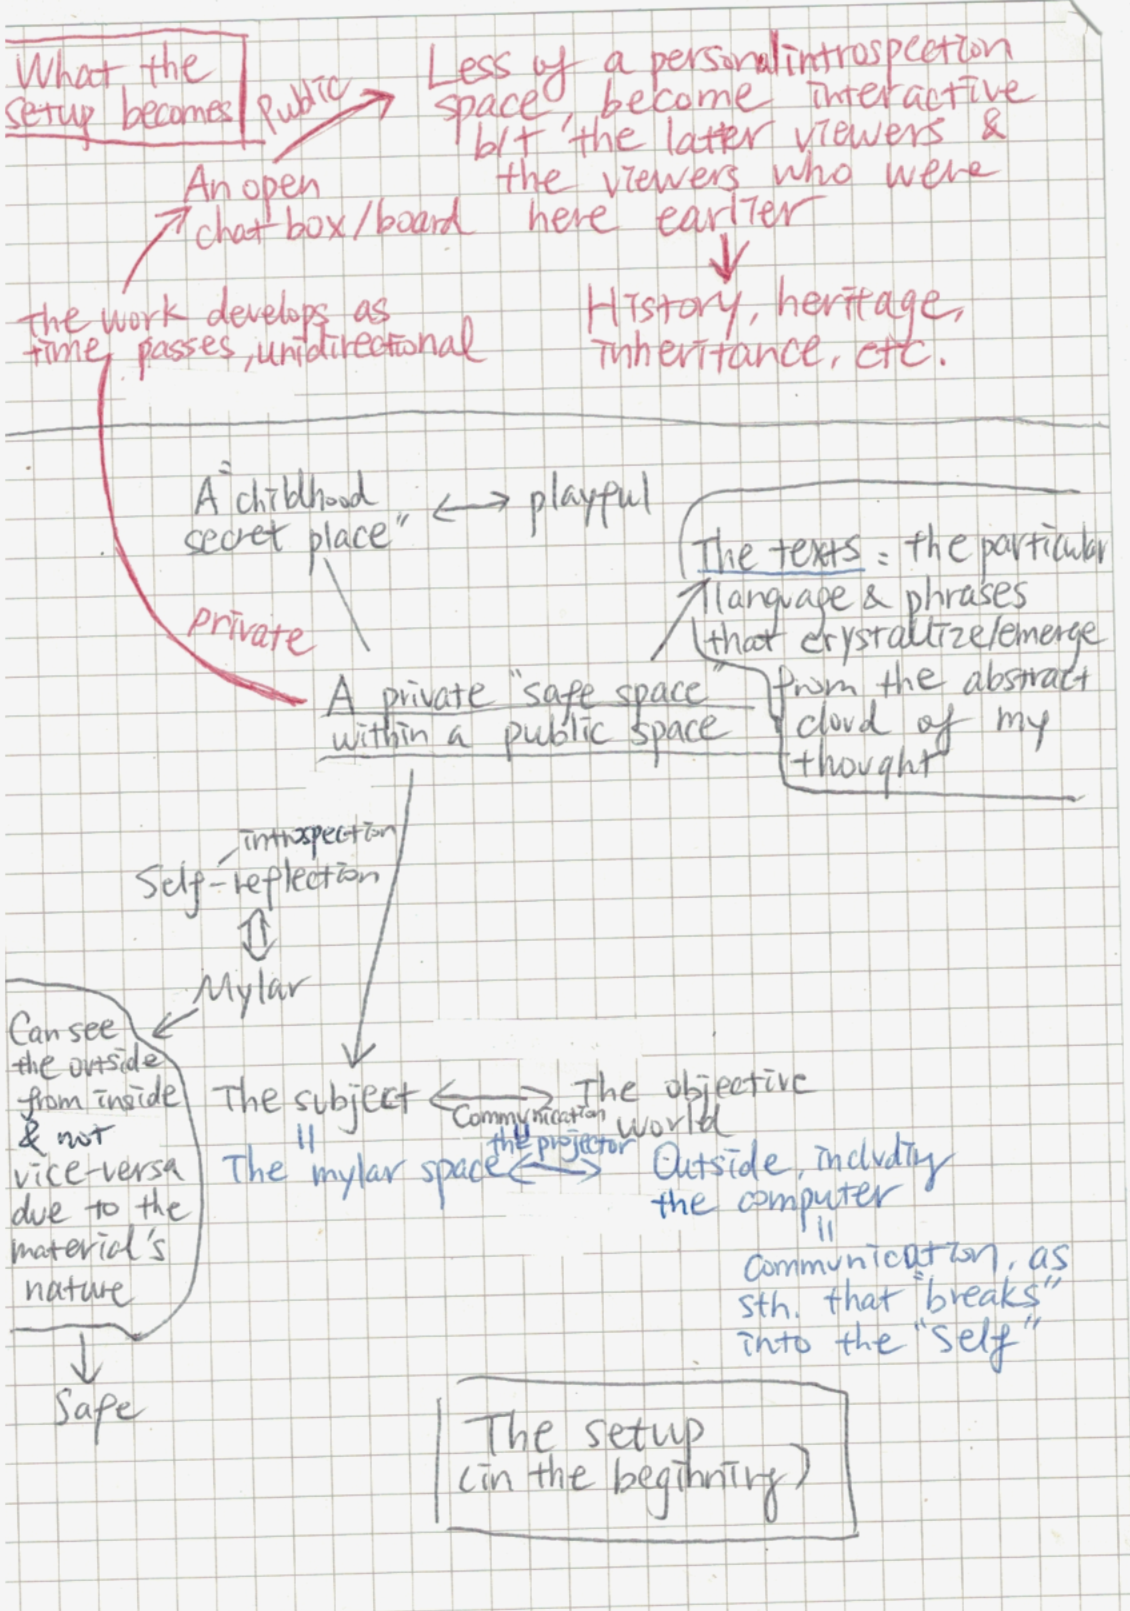 What the
setup becomes
Public
Less of a personal introspection
space, become interactive
b/t the latter viewers &
the viewers who were
here earlier
An open
chat box/board
History, heritage,
inheritance, etc.
the work develops as
time passes, unidirectional
private
A "childhood
secret place"
playful
The texts: the particular
language & phrases
that crystallize/emerge
from the abstract
cloud of my
thought
A private "safe space"
within a public space
introspection
Self-reflection
Mylar
Can see
the outside
from inside
& not
vice-versa
due to the
material's
nature
Safe
The subject
Communication
The objective
world
"
The mylar space
the projector
Outside, including
the computer
"
Communication, as
sth. that "breaks"
into the "self"
The setup
(in the beginning)